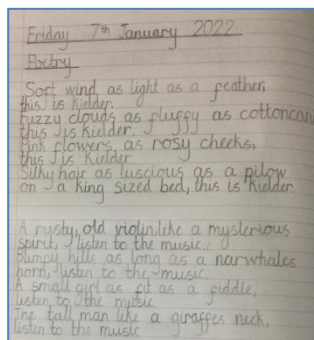 Friday 7th January 2022
Poetry
Soft wind as light as a feather,
this is Kielder.
Fuzzy clouds as fluffy as cottoncan
this is Kielder.
Pink flowers, as rosy cheeks,
this is Kielder
Silky hair as luscious as a pilow
on a king sized bed, this is Kielder.
A rusty, old violin, like a mysterious
spirit, listen to the music.
Bumpy hills as long as a narwhales
horn, listen to the music.
A small girl as fit as a fiddle,
listen to the music.
The tall man like a giraffes neck,
listen to the music